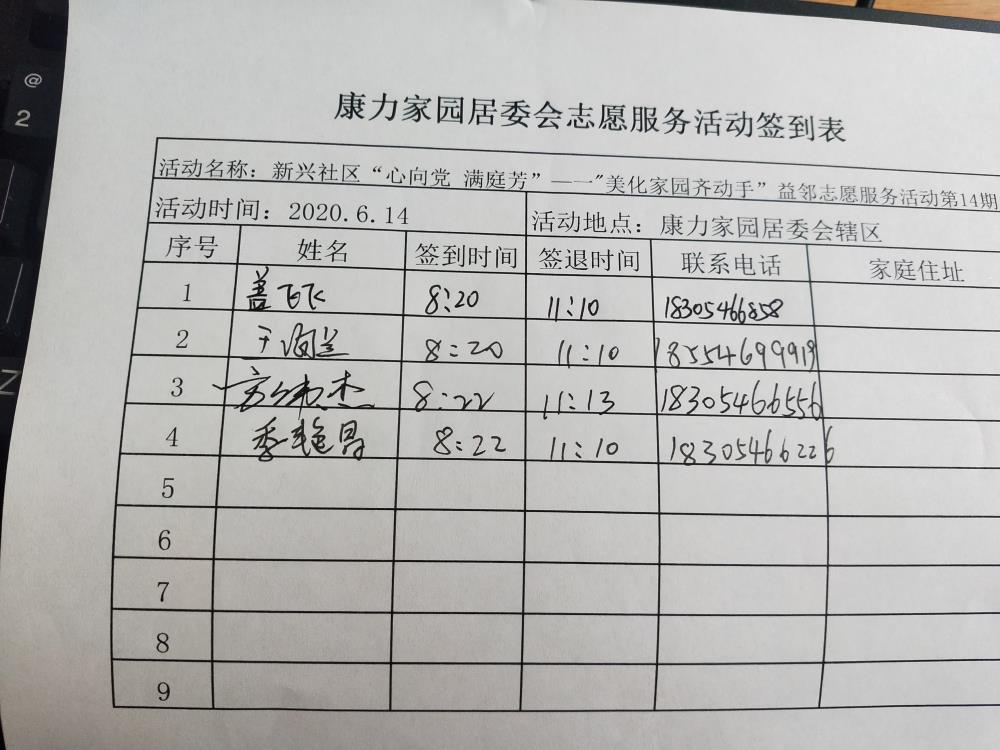 @
2
Z
康力家园居委会志愿服务活动签到表
活动名称：新兴社区“心向党 满庭芳”—一"美化家园齐动手”益邻志愿服务活动第14期
活动时间：2020.6.14 活动地点：康力家园居委会辖区
序号 姓名 签到时间 签退时间 联系电话 家庭住址
1 盖飞飞 8:20 11:10 18305466858
2 于润兰 8:20 11:10 18554699919
3 杰 8:22 11:13 18305466556
4 季艳昌 8:22 11:10 18305466226
5
6
7
8
9